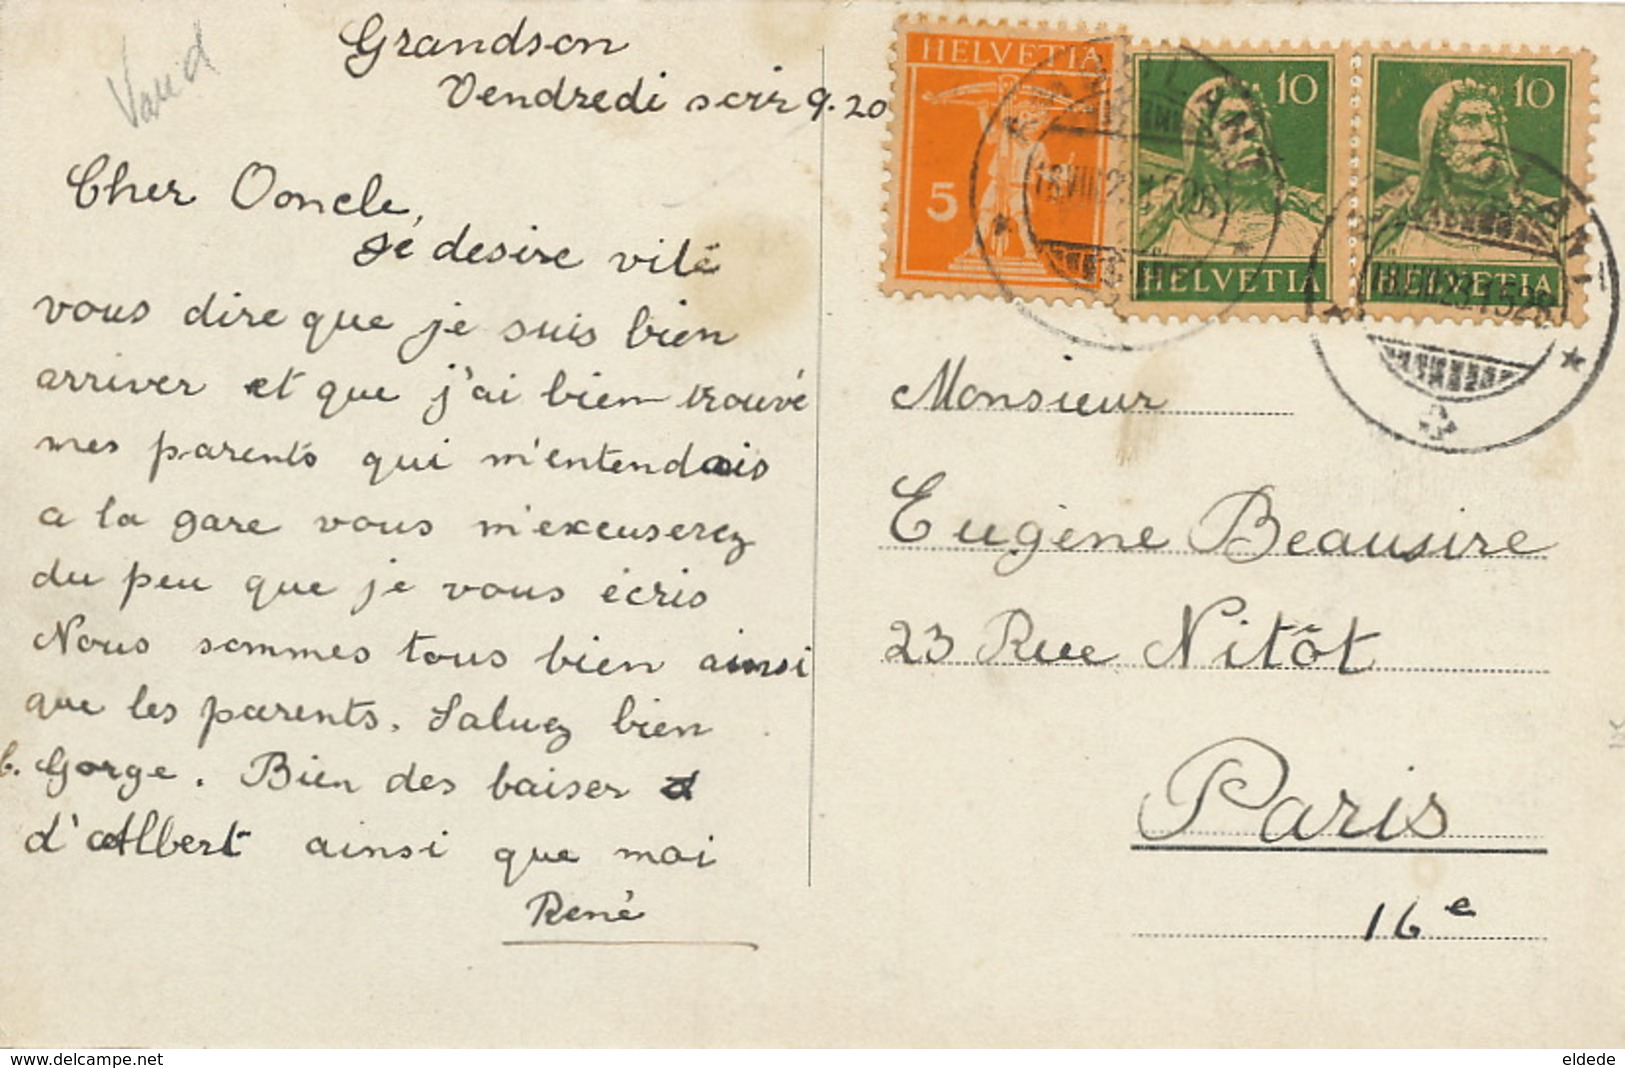 Grandson
Vendredi soir 9.20
Cher Ooncle,
Je desire vité
vous dire que je suis bien
arriver et que j'ai bien trouvé
mes parents qui m'entendais
a la gare vous m'excuserez
du peu que je vous écris
Nous sommes tous bien ainsi
que les parents. Saluez bien
b. Gorge. Bien des baiser
d'Albert ainsi que moi
René
HELVETIA
5
10
HELVETIA
10
HELVETIA
Monsieur
Eugène Beausire
23 Rue Nitôt
Paris
16e
www.delcampe.net
eldede